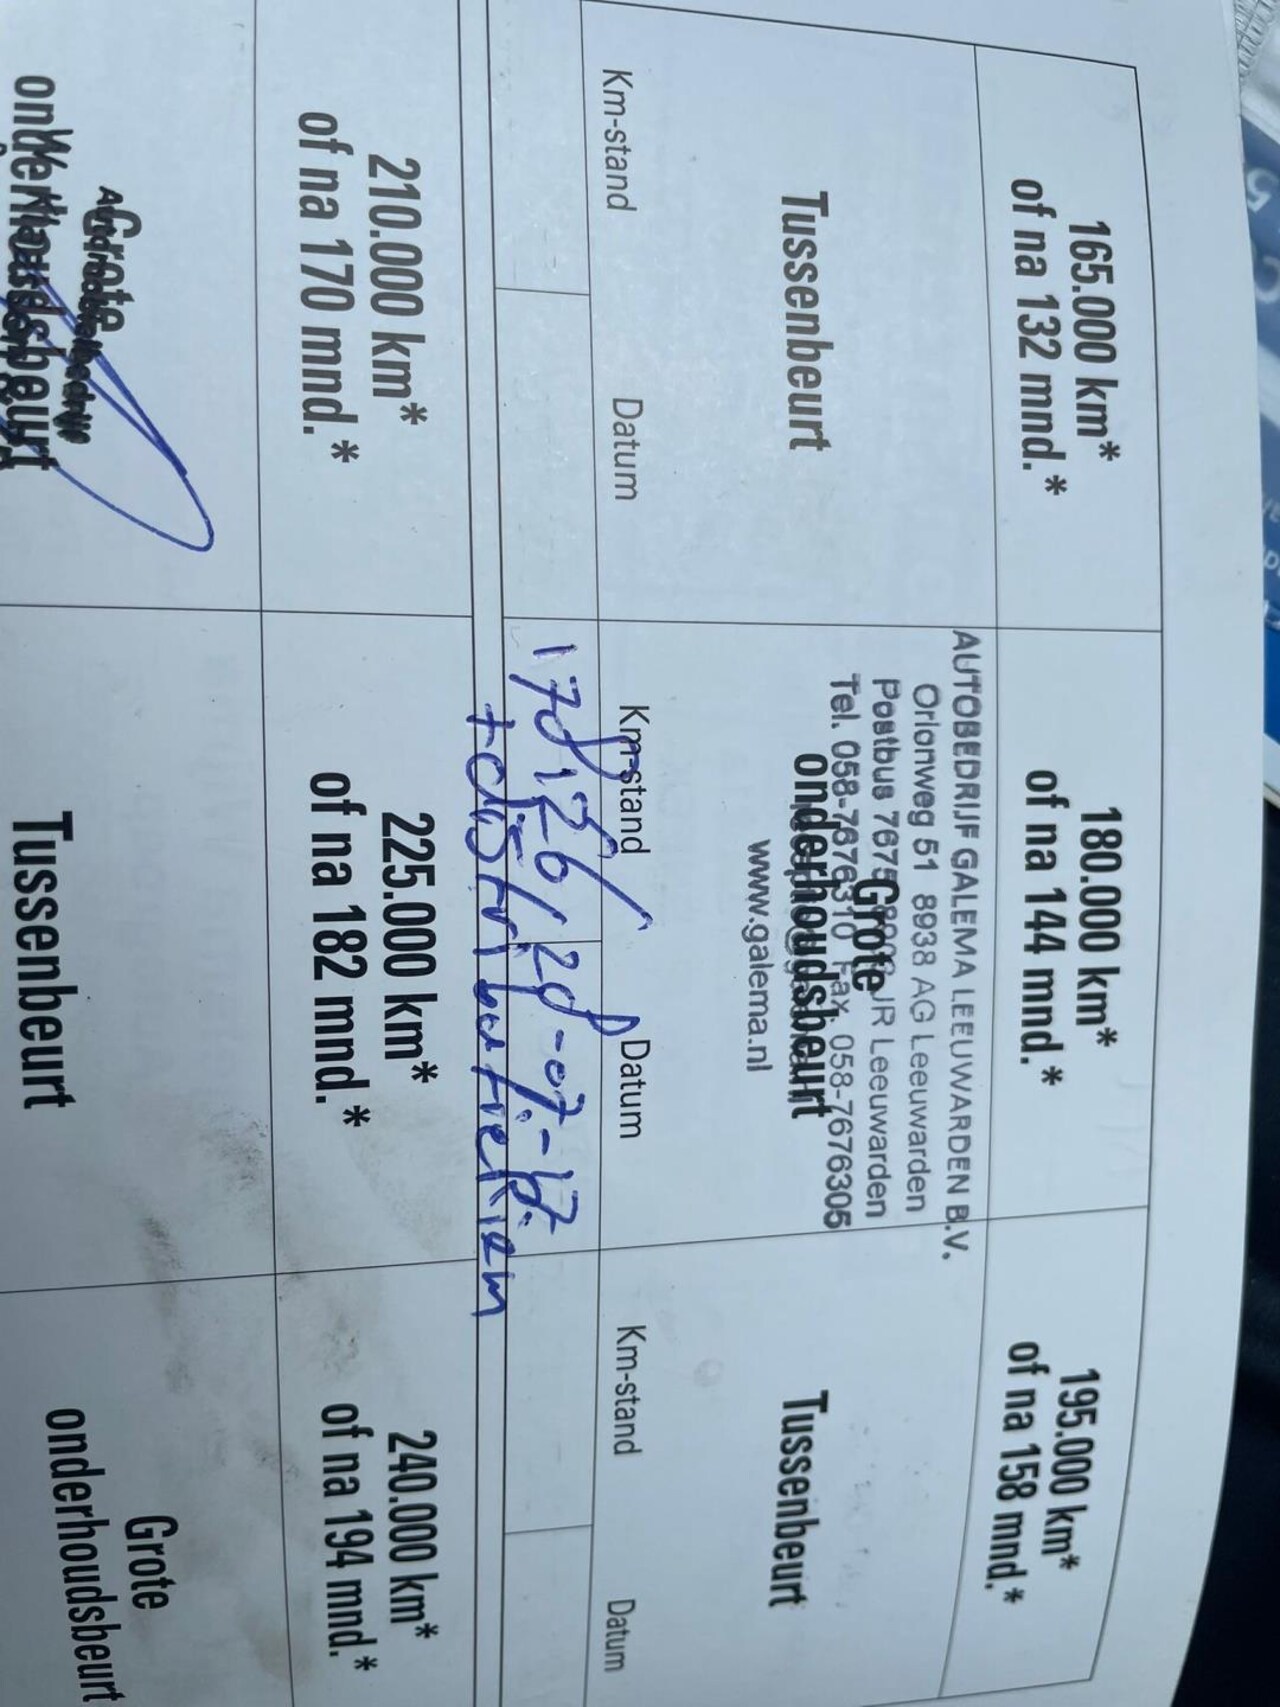 165.000 km*
of na 132 mnd.*
Tussenbeurt
Km-stand
Datum
180.000 km*
of na 144 mnd.*
AUTOBEDRIJF GALEMA LEEUWARDEN B.V.
Orionweg 51 8938 AG Leeuwarden
Postbus 7675 JR Leeuwarden
Grote
Tel. 058-7676310 Fax. 058-7676305
onderhoudsbeurt
www.galema.nl
Km-stand
Datum
20-07-17
+distributieriem
195.000 km*
of na 158 mnd.*
Tussenbeurt
Km-stand
Datum
210.000 km*
of na 170 mnd.*
Grote
onderhoudsbeurt
225.000 km*
of na 182 mnd.*
Tussenbeurt
240.000 km*
of na 194 mnd.*
Grote
onderhoudsbeurt